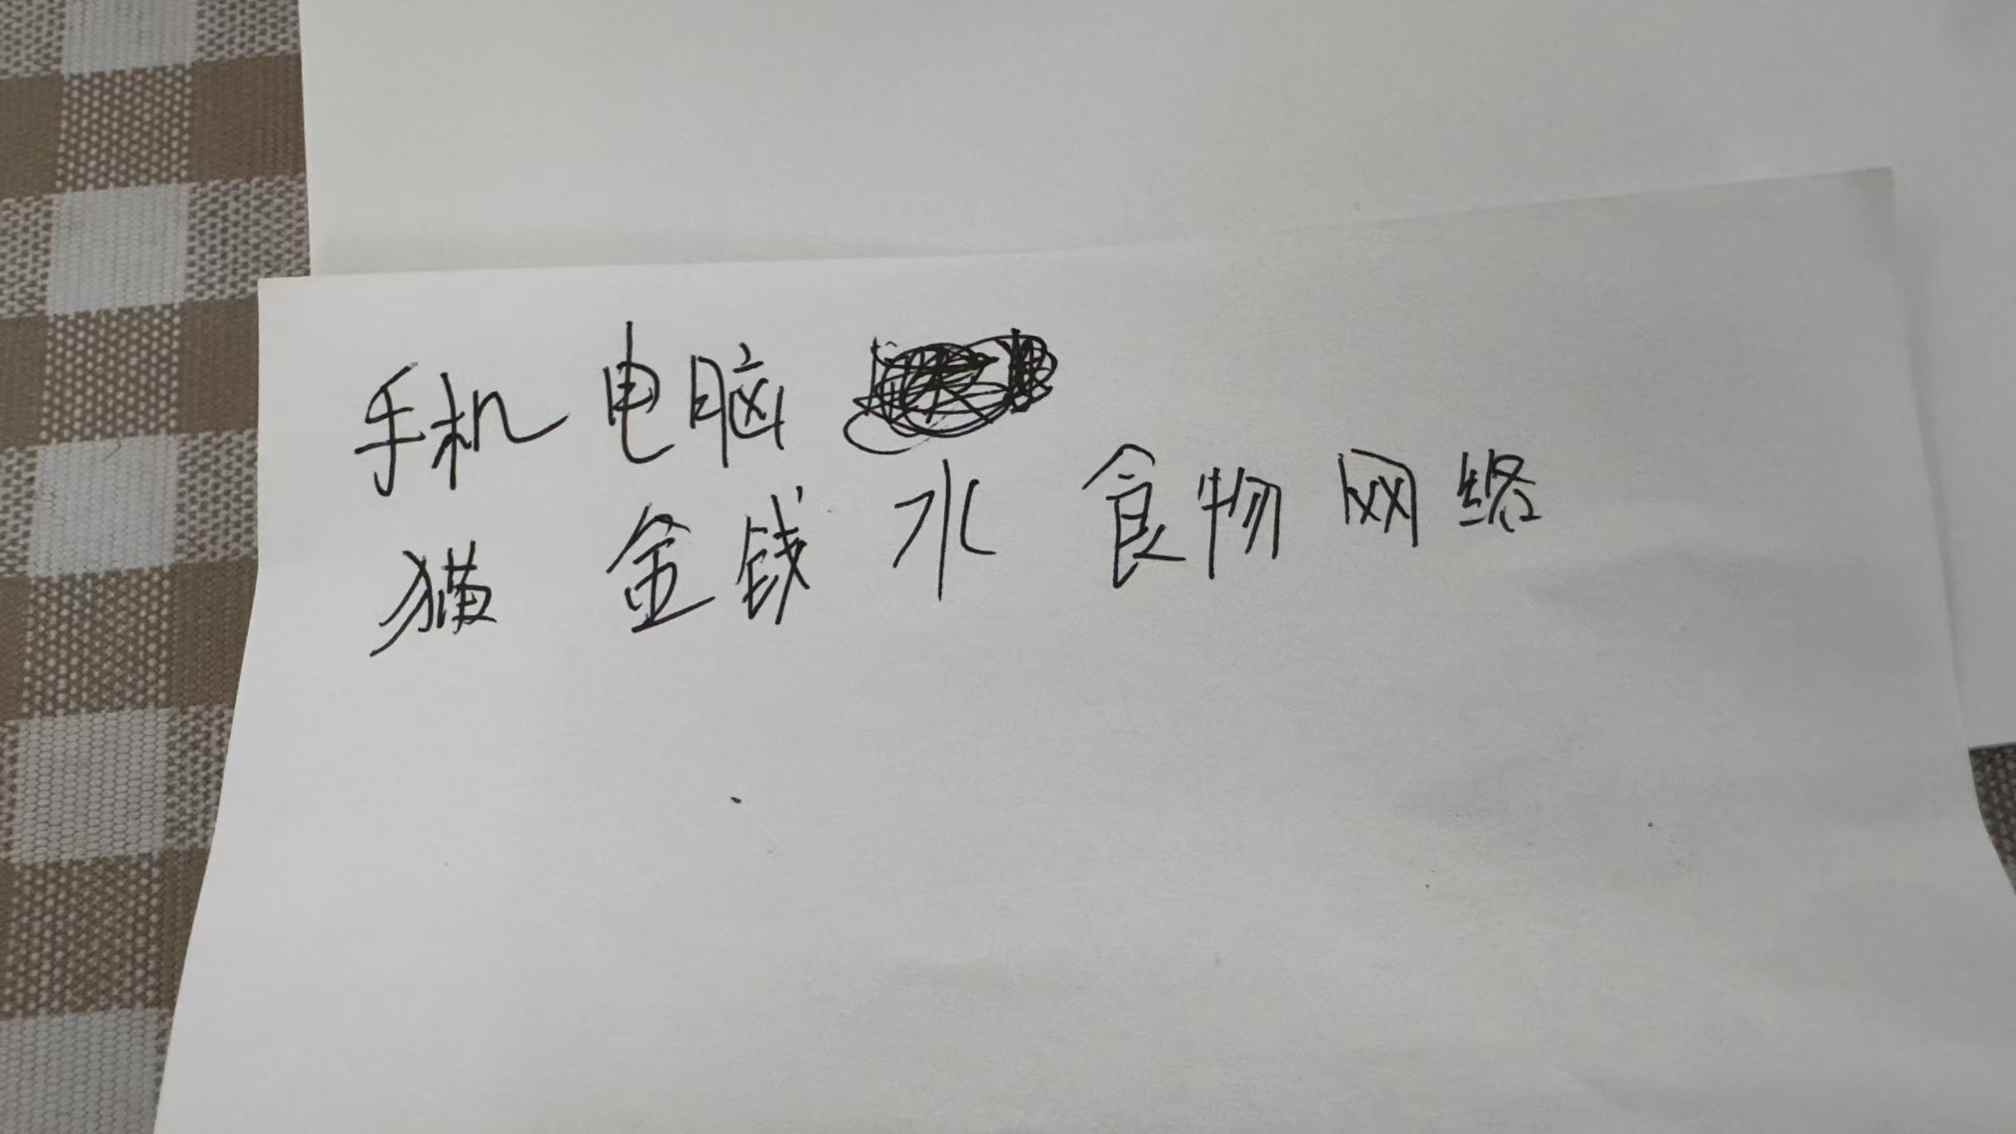 手机 电脑
猫 金钱 水 食物 网络